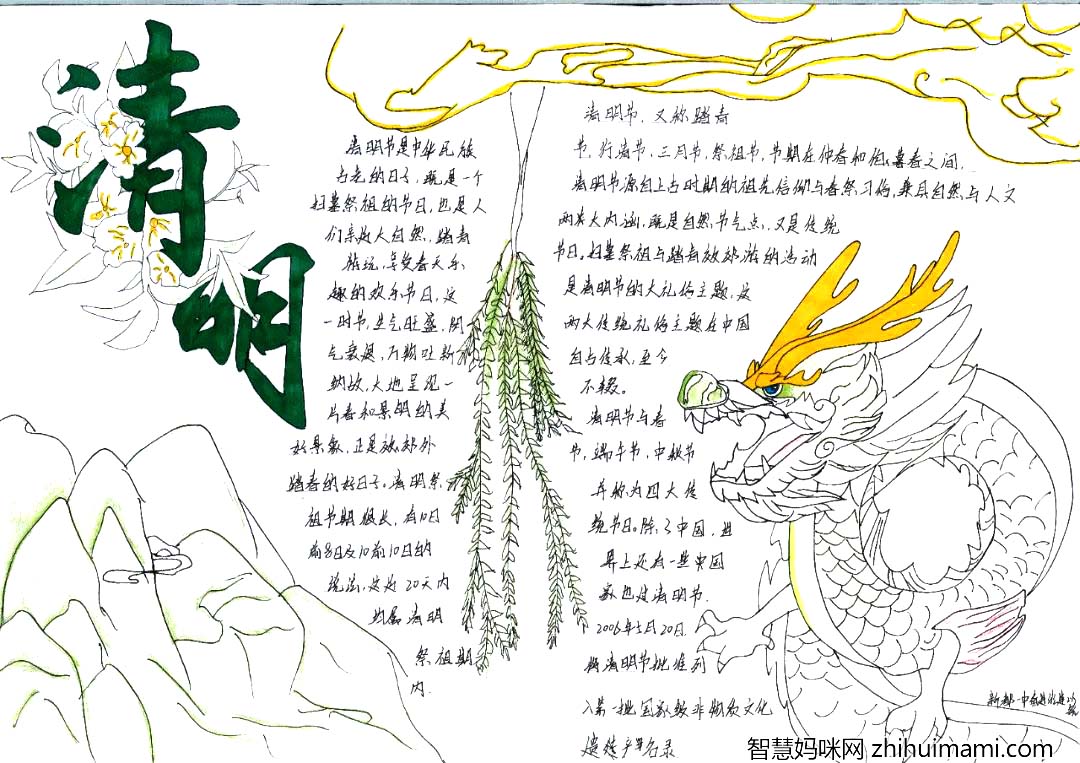 清明
清明节是中华民族
古老的日子，既是一个
扫墓祭祖的节日，也是人
们亲近大自然，踏青
游玩，享受春天乐
趣的欢乐节日，这
一时节，生气旺盛，阴
气衰退，万物吐新
纳故，大地呈现一
片春和景明的美
好景象，正是旅郊外
踏春的好日子。清明祭
祖节期很长，有10日
前8日及10前10日的
说法，这近20天内
均属清明
祭祖期
内.
清明节，又称踏青
节，行清节，三月节，祭祖节，节期在仲春和暮春之间.
清明节源自上古时期的祖先信仰与春祭习俗，兼具自然与人文
两大内涵，既是自然节气点，又是传统
节日。扫墓祭祖与踏青放郊游的活动
是清明节的大礼俗主题，这
两大传统礼俗主题在中国
自古传承，至今
不辍。
清明节与春
节，端午节，中秋节
并称为四大传
统节日。除了中国，世
界上还有一些
家也过清明节.
2006年5月20日.
清明节批准列
入第一批国家级非物质文化
遗产名录
智慧妈咪网 zhihuimami.com